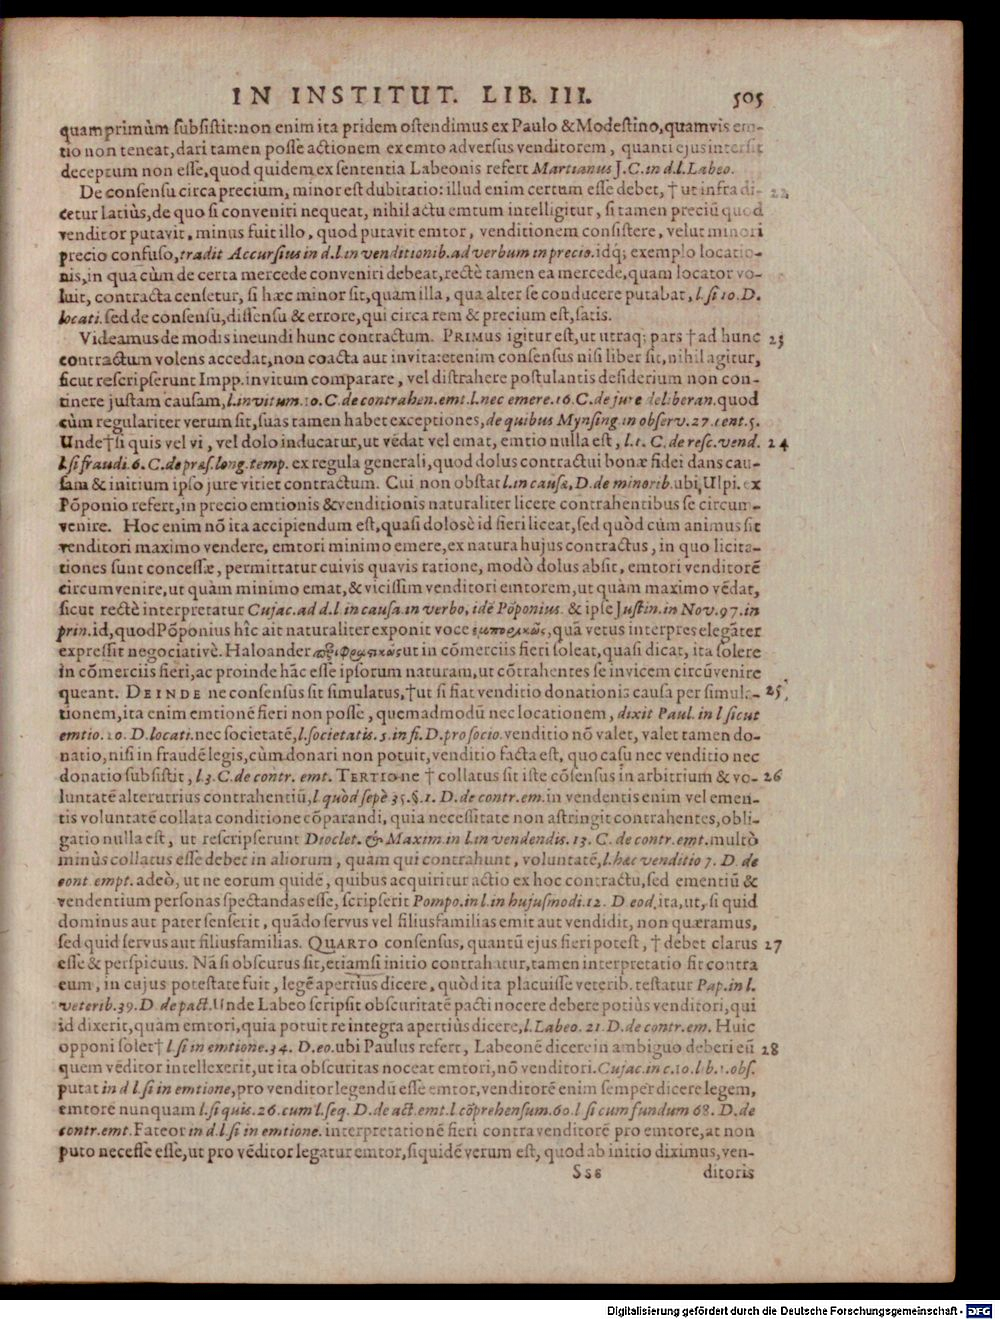 IN INSTITUT. LIB. III. 505
quamprimùm ſubſiſtit: non enim ita pridem oſtendimus ex Paulo & Modeſtino, quamvis em-
tio non teneat, dari tamen poſſe actionem ex emto adverſus venditorem, quanti ejus interſit
deceptum non eſſe, quod quidem ex ſententia Labeonis refert Martianus J. C. in d. l. Labeo.
De conſenſu circa precium, minor eſt dubitatio: illud enim certum eſſe debet, † ut infra di- 22
cetur latiùs, de quo ſi conveniri nequeat, nihil actu emtum intelligitur, ſi tamen preciū quod
venditor putavit, minus fuit illo, quod putavit emtor, venditionem conſiſtere, velut minori
precio confuſo, tradit Accurſius in d. l. in venditionib. ad verbum in precio. idq; exemplo locatio-
nis, in qua cùm de certa mercede conveniri debeat, rectè tamen ea mercede, quam locator vo-
luit, contracta cenſetur, ſi hæc minor ſit, quam illa, qua alter ſe conducere putabat, l. ſi 10. D.
locati. ſed de conſenſu, diſſenſu & errore, qui circa rem & precium eſt, ſatis.
Videamus de modis ineundi hunc contractum. PRIMUS igitur eſt, ut utraq; pars † ad hunc 23
contractum volens accedat, non coacta aut invita: etenim conſenſus niſi liber ſit, nihil agitur,
ſicut reſcripſerunt Impp. invitum comparare, vel diſtrahere poſtulantis deſiderium non con-
tinere juſtam cauſam, l. invitum. 10. C. de contrahen. emt. l. nec emere. 16. C. de jure deliberan. quod
cùm regulariter verum ſit, ſuas tamen habet exceptiones, de quibus Mynſing in obſerv. 27. cent. 5.
Unde † ſi quis vel vi, vel dolo inducatur, ut vēdat vel emat, emtio nulla eſt, l. 1. C. de reſc. vend. 24
l. ſi fraudi. 6. C. de præſ. long. temp. ex regula generali, quod dolus contractui bonæ fidei dans cau-
ſam & initium ipſo jure vitiet contractum. Cui non obſtat l. in cauſæ, D. de minorib. ubi, Ulpi. ex
Pōponio refert, in precio emtionis & venditionis naturaliter licere contrahentibus ſe circum-
venire. Hoc enim nō ita accipiendum eſt, quaſi dolosè id fieri liceat, ſed quòd cùm animus ſit
venditori maximo vendere, emtori minimo emere, ex natura hujus contractus, in quo licita-
tiones ſunt conceſſæ, permittatur cuivis quavis ratione, modò dolus abſit, emtori venditorē
circumvenire, ut quàm minimo emat, & viciſſim venditori emtorem, ut quàm maximo vēdat,
ſicut rectè interpretatur Cujac. ad d. l. in cauſa. in verbo, idē Pōponius. & ipſe Juſtin. in Nov. 97. in
prin. id, quod Pōponius hîc ait naturaliter exponit voce quā vetus interpres elegāter
expreſſit negociativè. Haloander ut in cōmerciis fieri ſoleat, quaſi dicat, ita ſolere
in cōmerciis fieri, ac proinde hāc eſſe ipſorum naturam, ut cōtrahentes ſe invicem circūvenire
queant. DEINDE ne conſenſus ſit ſimulatus, † ut ſi fiat venditio donationis cauſa per ſimula- 25
tionem, ita enim emtionē fieri non poſſe, quemadmodū nec locationem, dixit Paul. in l ſicut
emtio. 20. D. locati. nec ſocietatē, l. ſocietatis. 5. in fi. D. pro ſocio. venditio nō valet, valet tamen do-
natio, niſi in fraudē legis, cùm donari non potuit, venditio facta eſt, quo caſu nec venditio nec
donatio ſubſiſtit, l. 3. C. de contr. emt. TERTIO ne † collatus ſit iſte cōſenſus in arbitrium & vo- 26
luntatē alterutrius contrahentiū, l. quòd ſepè 35. §. 1. D. de contr. em. in vendentis enim vel emen-
tis voluntatē collata conditione cōparandi, quia neceſſitate non aſtringit contrahentes, obli-
gatio nulla eſt, ut reſcripſerunt Dioclet. & Maxim. in l. in vendendis. 13. C. de contr. emt. multò
minùs collatus eſſe debet in aliorum, quàm qui contrahunt, voluntatē, l. hæc venditio 7. D. de
cont. empt. adeò, ut ne eorum quidē, quibus acquiritur actio ex hoc contractu, ſed ementiū &
vendentium perſonas ſpectandas eſſe, ſcripſerit Pompo. in l. in hujuſmodi. 12. D. eod. ita, ut, ſi quid
dominus aut pater ſenſerit, quādo ſervus vel filiusfamilias emit aut vendidit, non quæramus,
ſed quid ſervus aut filiusfamilias. QUARTO conſenſus, quantū ejus fieri poteſt, † debet clarus 27
eſſe & perſpicuus. Nā ſi obſcurus ſit, etiamſi initio contrahatur, tamen interpretatio fit contra
eum, in cujus poteſtate fuit, legē apertius dicere, quòd ita placuiſſe veterib. teſtatur Pap. in l.
veterib. 39. D. de pact. Unde Labeo ſcripſit obſcuritatē pacti nocere debere potiùs venditori, qui
id dixerit, quàm emtori, quia potuit re integra apertiùs dicere, l. Labeo. 21. D. de contr. em. Huic
opponi ſolet † l. ſi in emtione. 34. D. eo. ubi Paulus refert, Labeonē dicere in ambiguo deberi eū 28
quem vēditor intellexerit, ut ita obſcuritas noceat emtori, nō venditori. Cujac. in c. 10. lib. 1. obſ.
putat in d. l. ſi in emtione, pro venditor legendū eſſe emtor, venditorē enim ſemper dicere legem,
emtorē nunquam l. ſi quis. 26. cum l. ſeq. D. de act. emt. l. cōprehenſum. 60. l. ſi cum fundum 68. D. de
contr. emt. Fateor in d. l. ſi in emtione. interpretationē fieri contra venditorē pro emtore, at non
puto neceſſe eſſe, ut pro vēditor legatur emtor, ſiquidē verum eſt, quod ab initio diximus, ven-
Sss ditoris
Digitalisierung gefördert durch die Deutsche Forschungsgemeinschaft - DFG